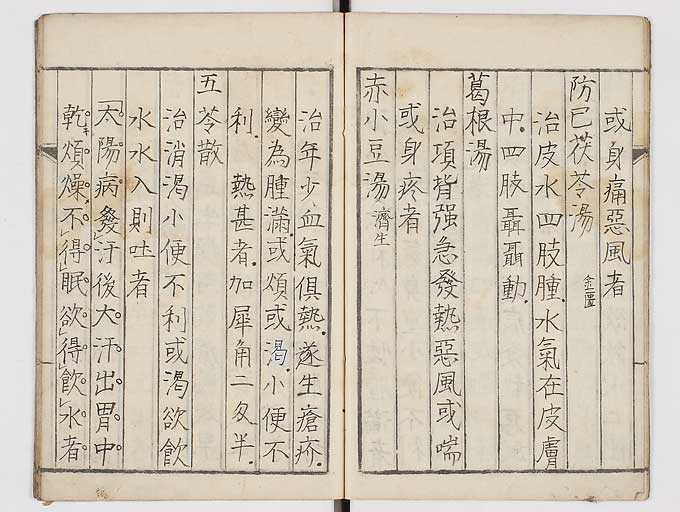 或身痛惡風者
防已茯苓湯 金匱
治皮水四肢腫水氣在皮膚
中四肢聶聶動
葛根湯
治項背强急發熱惡風或喘
或身疼者
赤小豆湯 濟生
治年少血氣俱熱遂生瘡疥
變為腫滿或煩或渴小便不
利熱甚者加犀角二匁半
五苓散
治消渴小便不利或渴欲飲
水水入則吐者
太陽病發汗後大汗出胃中
乾煩燥不得眠欲得飲水者